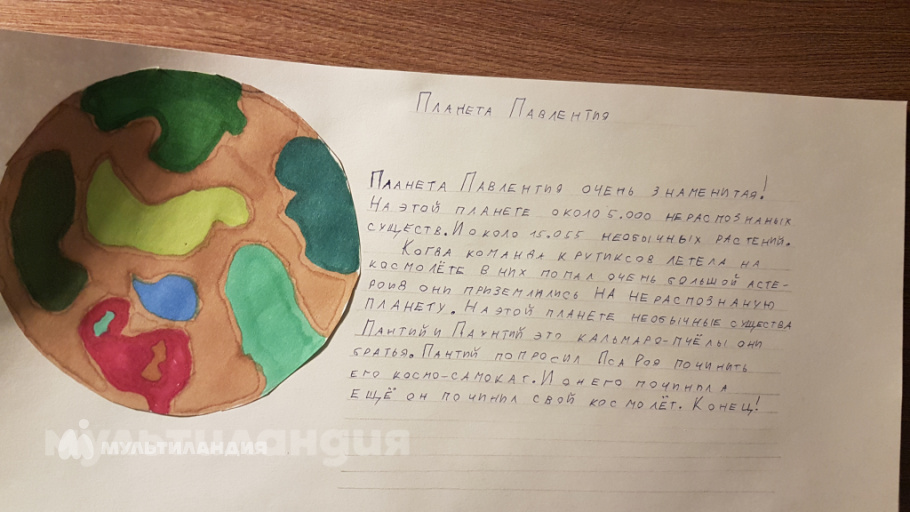 Планета Павлентия
Планета Павлентия очень знаменитая!
На этой планете около 5.000 нераспознаных
существ. И около 15.055 необычных растений.
Когва команва крутиксов летела на
космолёте в них попал очень большой асте-
роив они приземлились на нераспознаную
планету. На этой планете необычные существа
Пантий и Паунтий это кальмаро-пчёлы они
братья. Пантий попросил Пса Роя починить
его космо-самокат. И он его починил а
ещё он починил свой космолёт. Конец!
мультиландия
МУЛЬТИЛАНДИЯ